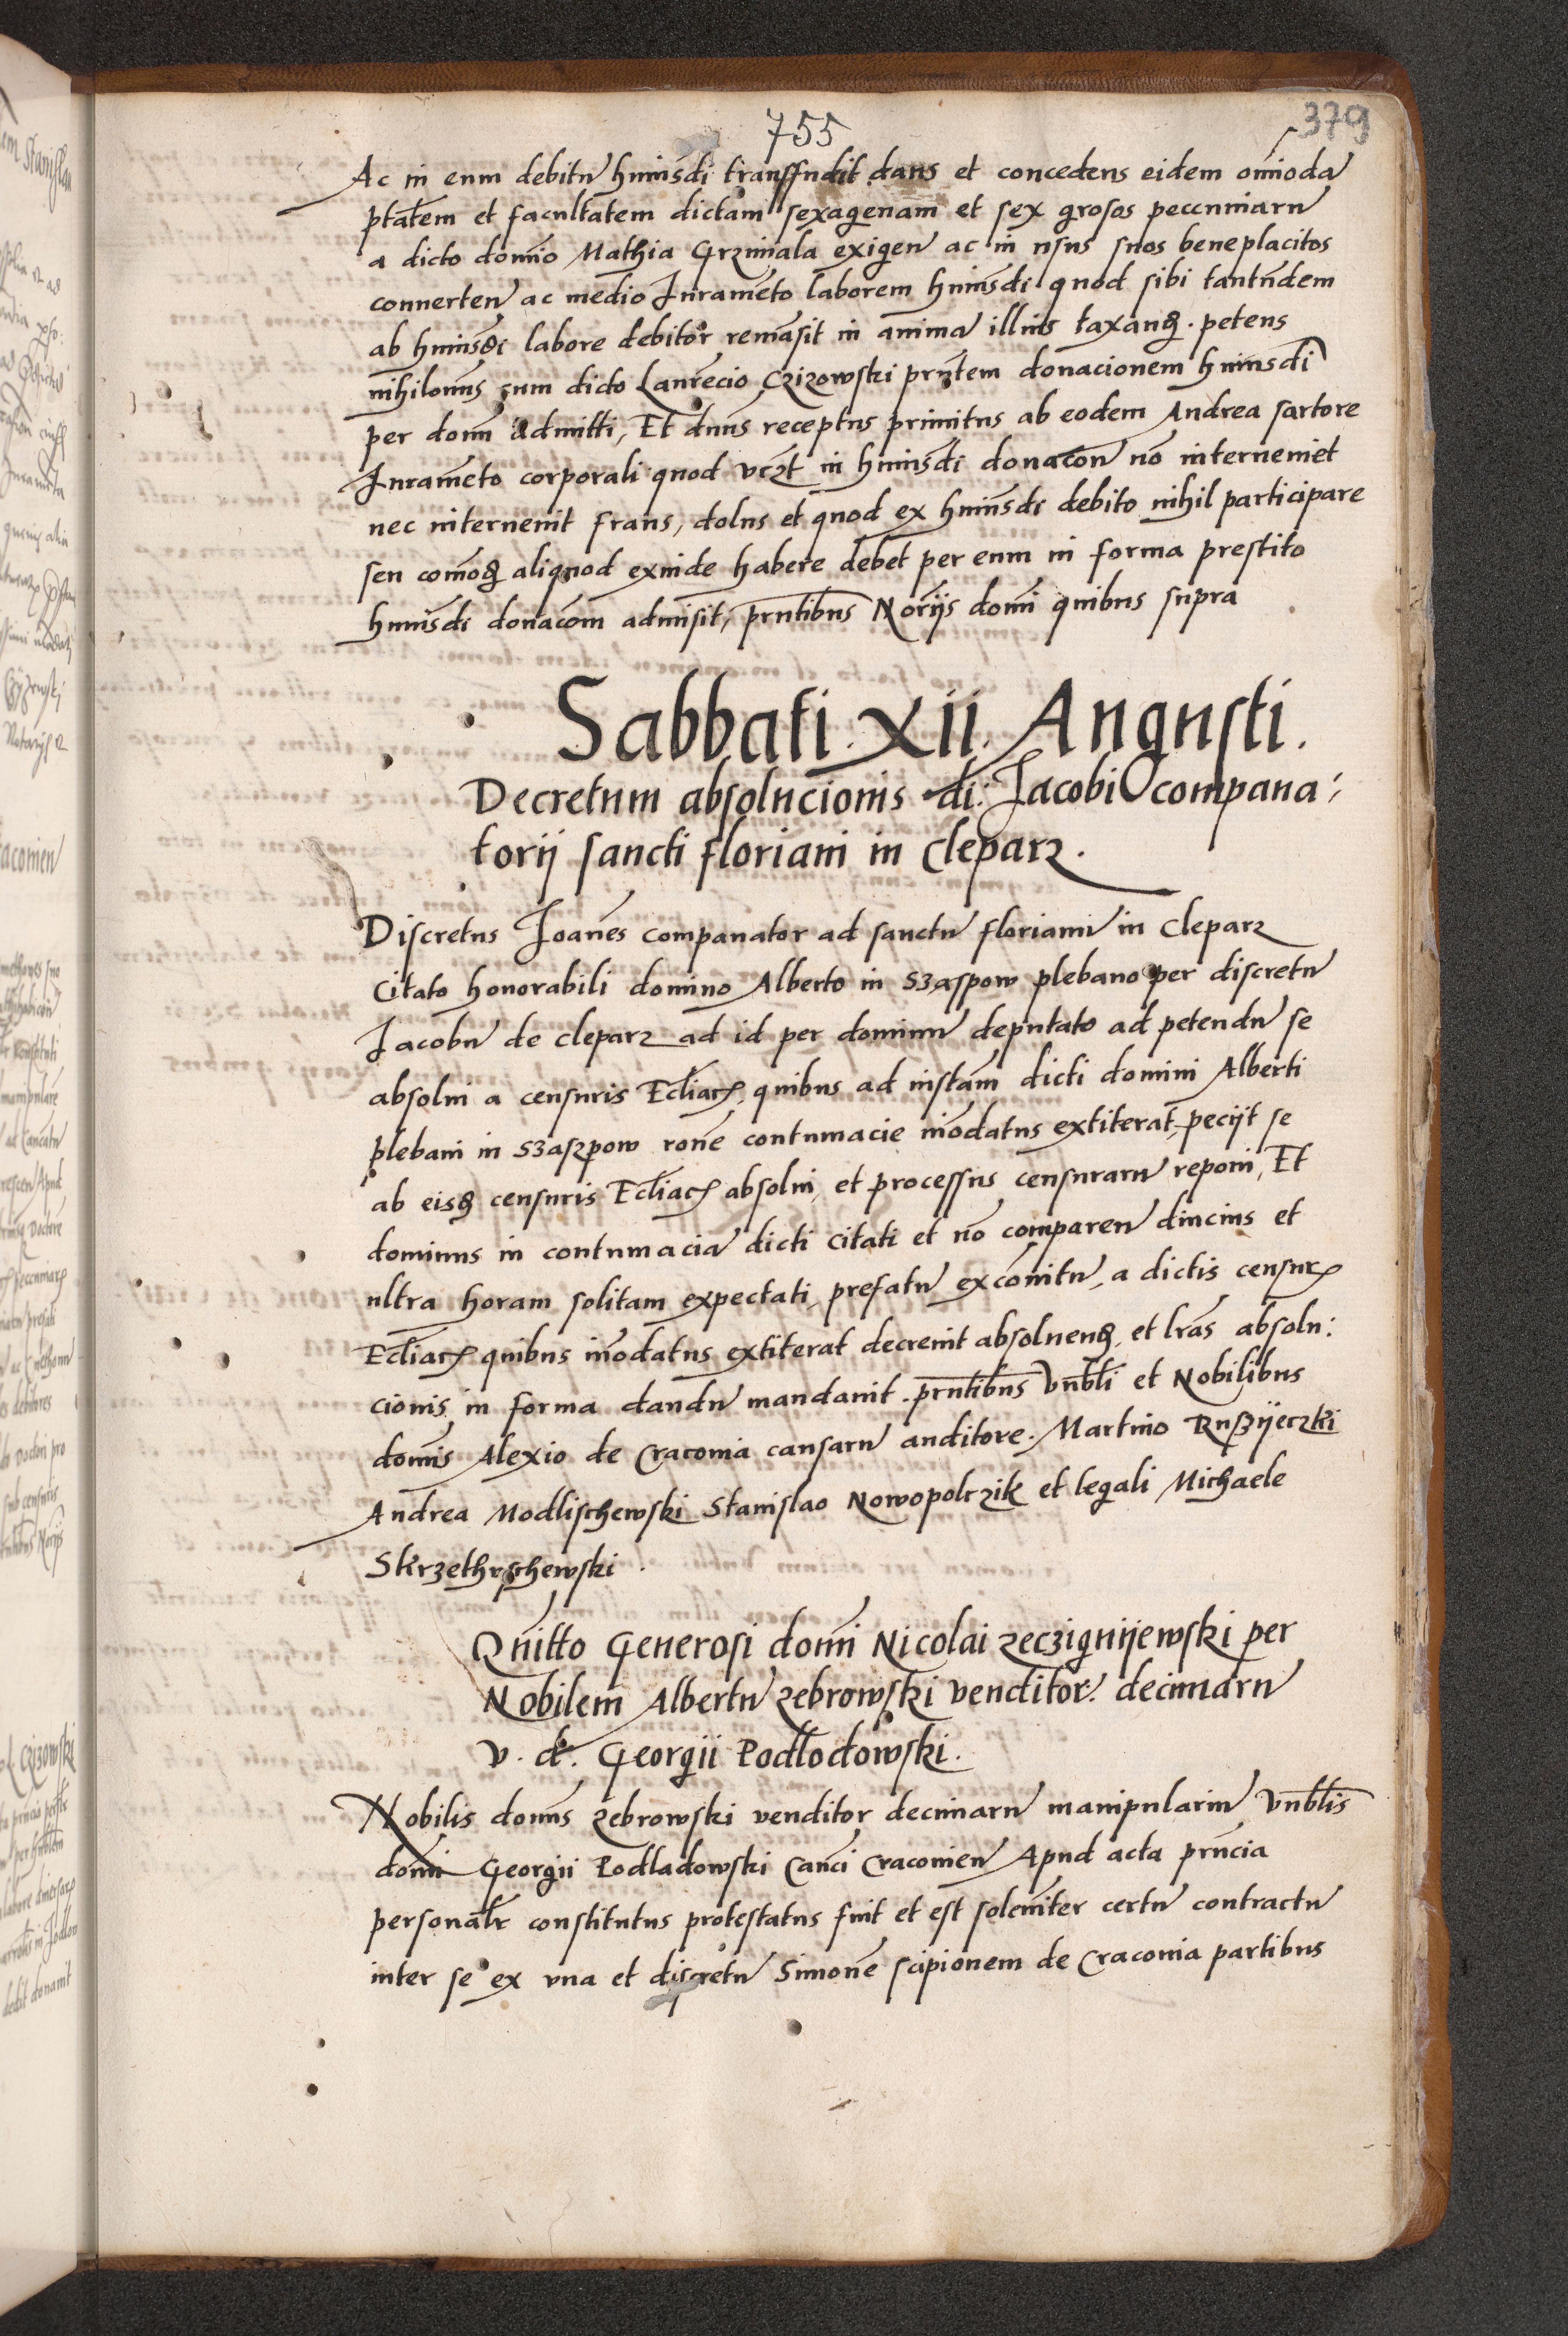 755
379
Ac in eum debitu huiusdi transfudit dans et concedens eidem omoda
ptatem et facultatem dictam sexagenam et sex grosos pecuniaru
a dicto domno Mathia Grzimala exigen ac in usus suos beneplacitos
conuerten ac medio Iurameto laborem huiusdi quod sibi tantundem
ab huiusdi labore debitor remasit in anima illius taxand. petens
nihilomus cum dicto Laurecio Czizowski prntem donacionem huiusdi
per domn admitti, Et dnns receptus primitus ab eodem Andrea sartore
Iurameto corporali quod vczt in huiusdi donacon no interueniet
nec interuenit fraus, dolus et quod ex huiusdi debito nihil participare
seu comod aliquod exinde habere debet per eum in forma prestito
huiusdi donacom admisit, prntibus Noriis domi quibus supra
Sabbati. xii. Augusti.
Decretum absolucionis di: Jacobi compana:
torij sancti floriani in Cleparz.
Discretus Joanes companator ad sanctu florianu in Cleparz
Citato honorabili domino Alberto in Szaspow plebano per discretu
Jacobu de Cleparz ad id per dominu deputato ad petendu se
absolui a censuris Ecliacis, quibus ad instam dicti domini Alberti
plebani in Szaszpow rone contumacie inodatus extiterat, pecijt se
ab eisd censuris Ecliacis absolui, et processus censuraru reponi, Et
dominus in contumacia dicti citati et no comparen diucius et
ultra horam solitam expectati, prefatu excomitu, a dictis censuris
Ecliacis quibus inodatus extiterat decreuit absoluend, et lras absolu:
cionis in forma dandu mandauit. prntibus vnbli et Nobilibus
domis Alexio de Cracouia causaru auditore. Martino Ruszijeczki
Andrea Modlischewski Stanislao Nowopolczik et legali Michaele
Skrzethuschewski.
Quitto Generosi domi Nicolai Zeczignijewski per
Nobilem Albertu Zebrowski venditor. decimaru
v. d. Georgii Podlodowski.
Nobilis doms Zebrowski venditor decimaru manipulariu vnblis
domi Georgii Podladowski Canci Cracouien Apud acta prncia
personalr constitutus protestatus fuit et est solemiter certu contractu
inter se ex vna et discretu Simone scipionem de Cracouia partibus